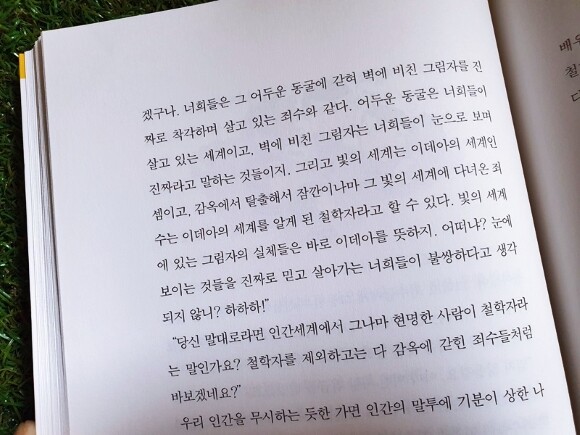 겠구나. 너희들은 그 어두운 동굴에 갇혀 벽에 비친 그림자를 진
짜로 착각하며 살고 있는 죄수와 같다. 어두운 동굴은 너희들이
살고 있는 세계이고, 벽에 비친 그림자는 너희들이 눈으로 보며
진짜라고 말하는 것들이지. 그리고 빛의 세계는 이데아의 세계인
셈이고, 감옥에서 탈출해서 잠깐이나마 그 빛의 세계에 다녀온 죄
수는 이데아의 세계를 알게 된 철학자라고 할 수 있다. 빛의 세계
에 있는 그림자의 실체들은 바로 이데아를 뜻하지. 어떠냐? 눈에
보이는 것들을 진짜로 믿고 살아가는 너희들이 불쌍하다고 생각
되지 않니? 하하하!"
"당신 말대로라면 인간세계에서 그나마 현명한 사람이 철학자라
는 말인가요? 철학자를 제외하고는 다 감옥에 갇힌 죄수들처럼
바보겠네요?"
우리 인간을 무시하는 듯한 가면 인간의 말투에 기분이 상한 나
배우
철
다